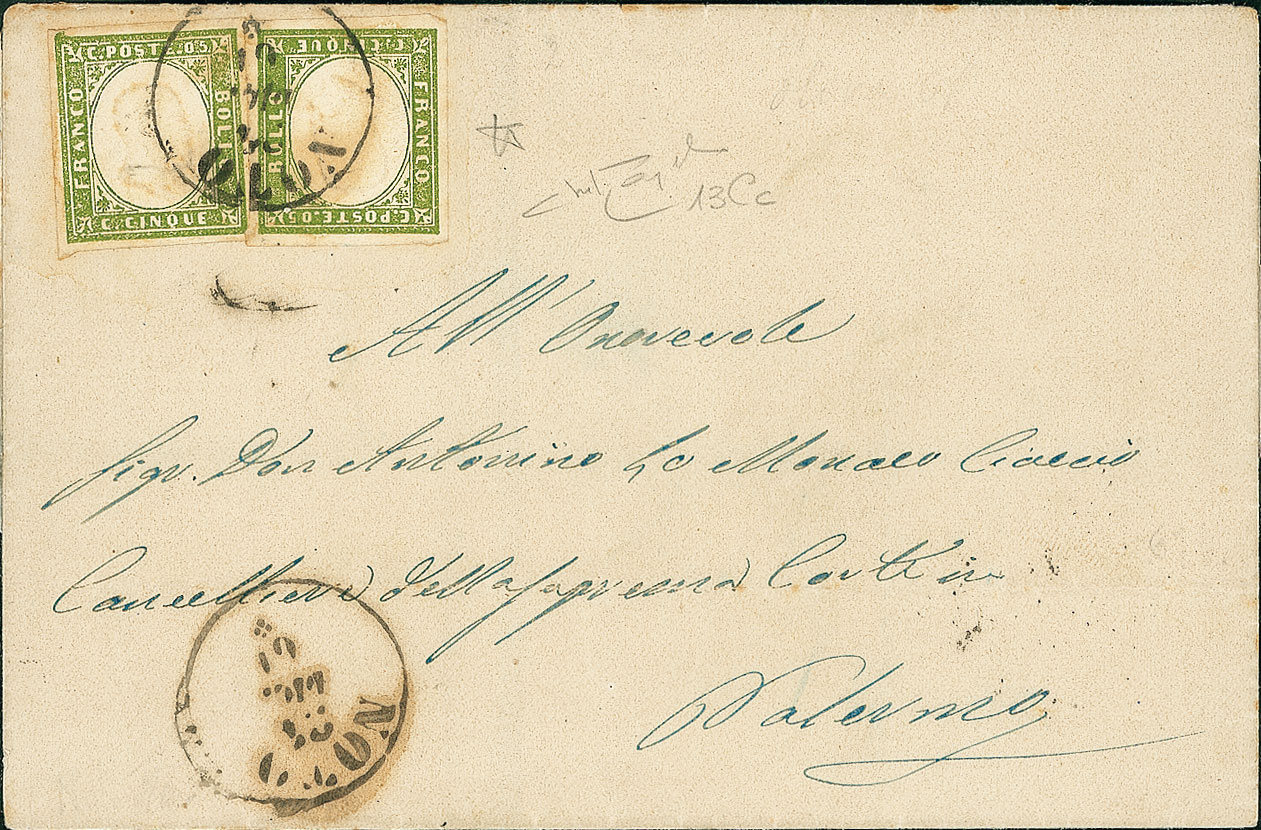 C. POSTE. 05
FRANCO
BOLLO
C. CINQUE
C. CINQUE
BOLLO
FRANCO
C. POSTE. 05
NOTO
13Cc
All' Onorevole
Sigr. Don Antonino Lo Monaco Ciaccio
Cancelliere della Suprema Corte in
Palermo
NOTO